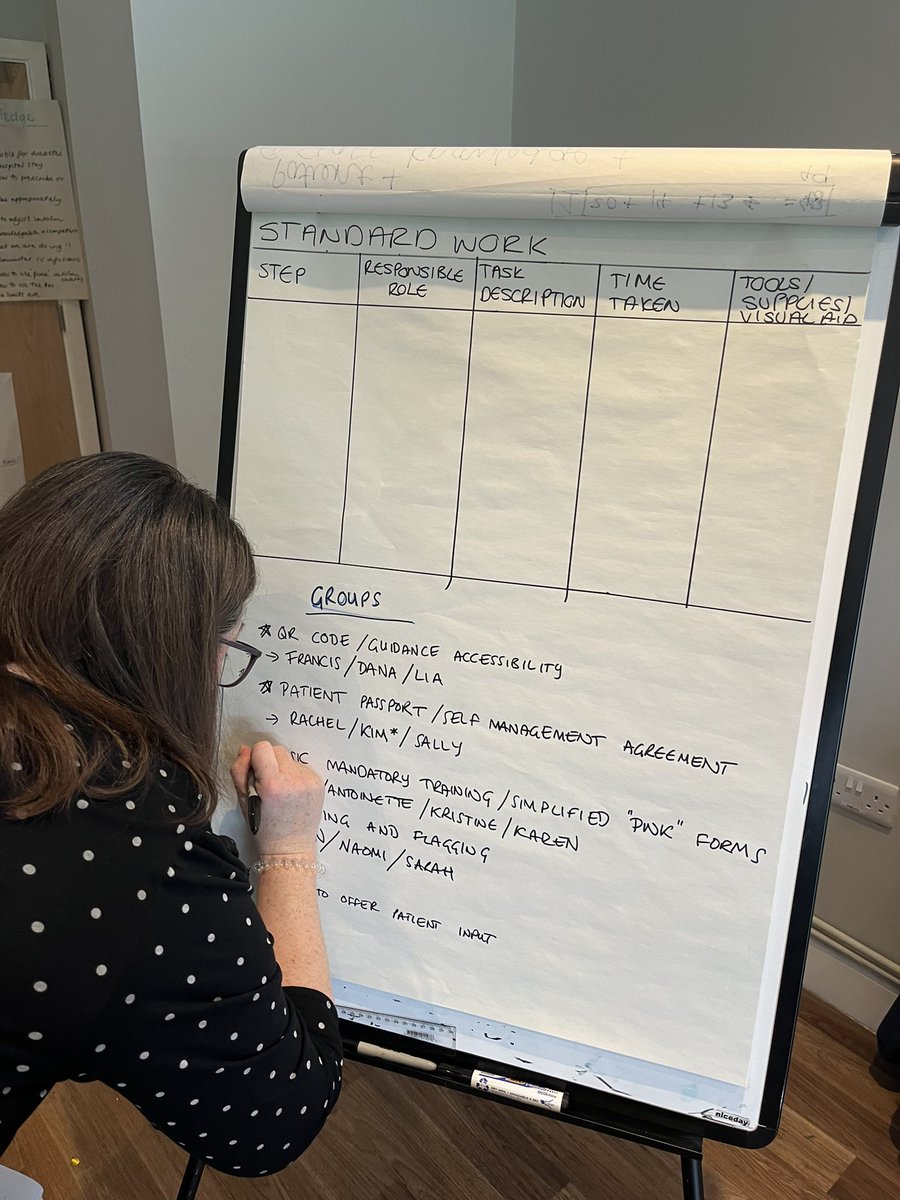 STANDARD WORK
STEP
RESPONSIBLE
ROLE
TASK
DESCRIPTION
TIME
TAKEN
TOOLS/
SUPPLIES/
VISUAL AID
GROUPS
QR CODE / GUIDANCE ACCESSIBILITY
→ FRANCIS / DANA / LIA
PATIENT PASSPORT / SELF MANAGEMENT AGREEMENT
→ RACHEL / KIM* / SALLY
MANDATORY TRAINING / SIMPLIFIED "PINK" FORMS
/ ANTOINETTE / KRISTINE / KAREN
AND FLAGGING
/ NAOMI / SARAH
TO OFFER PATIENT INPUT
niceday
ledge
hospital stay
to adjust insulin